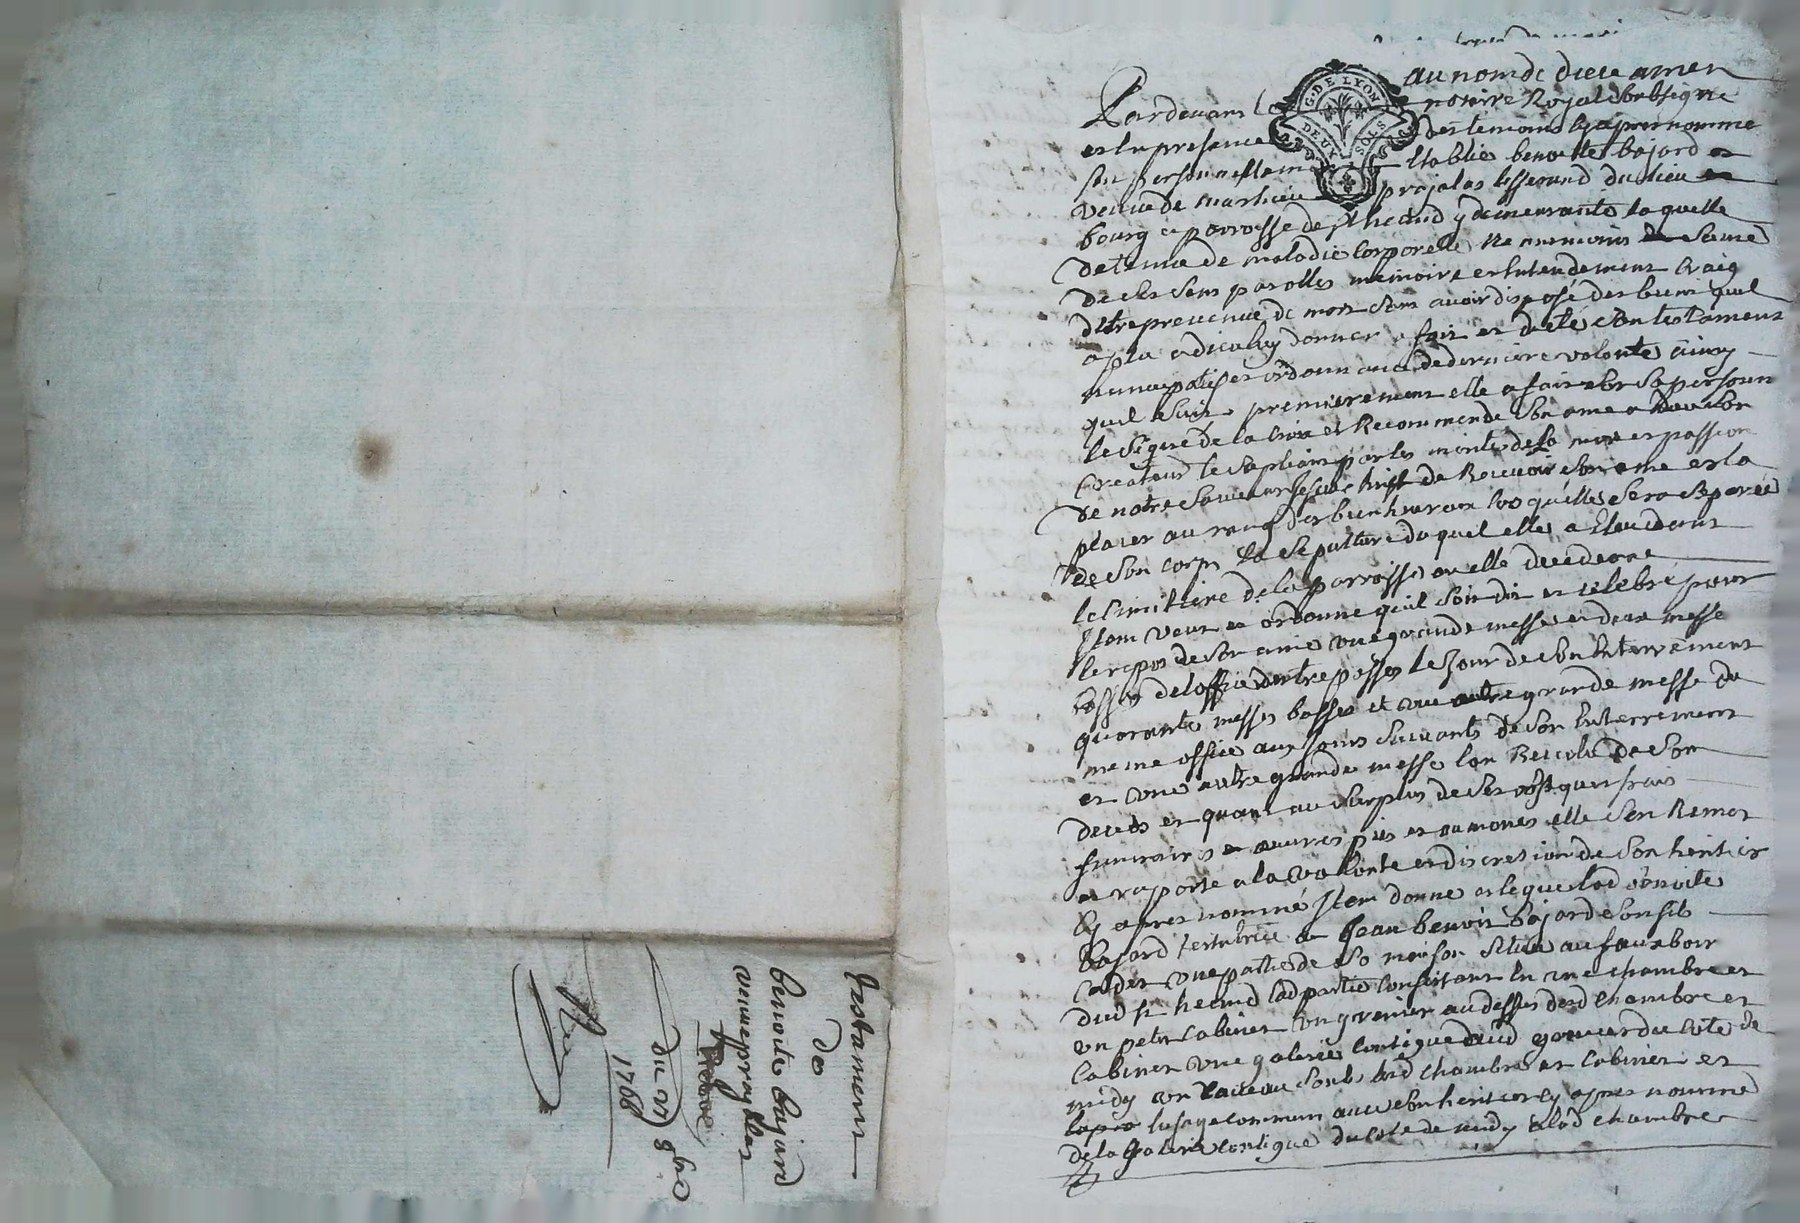 testament
de
benoite bajard
veuve proglas
du 21 8bre
1768
au nom de dieu amen
G. DE LYON
DEUX SOLS
Pardevant le notaire Royal soubsigne
et en presence des temoins cy apres nomme
fut personnellement Etablie benoitte bajard
veuve de mathieu projalas tisserand du lieu
bourg et parroisse de st heand y demeurante laquelle
detenue de maladie corporelle neanmoins saine
de ses sens parolles memoire et entendement craig
detre prevenue de mort sans avoir disposé des biens quil
a plu a dieu luy donner a fait et dicté son testament
nuncupatif et ordonnance de derniere volonté ainsy
quil suit premierement elle a fait sur sa personn
le signe de la croix et Recommende son ame a dieu son
Createur le supliant par les merites de la mort et passion
de notre sauveur Jesus Christ de Recevoir son ame et la
placer au rang des bienheureux lorsquelle sera separée
de son corps la sepulture duquel elle a Elu dans
le simitiere de la parroisse ou elle decedera
Item veut et ordonne quil soit dit et célébré pour
le repos de son ame une grande messe et deux messe
basses de loffice des trepassés le Jour de son Enterrement
quarante messes basses et une autre grande messe du
meme office aux jours suivants de son Enterrement
et une autre grande messe lan Revolu de son
decès et quant au surplus de ses obseques frais
funeraires et œuvres pies et aumones elle sen Remet
et raporte a la volonte et discretion de son heritier
Cy apres nommé Item donne et legue lad benoite
bajard testatrice a Jean benoit bajard son fils
cadet une partie de sa maison située au fauxbour
dud st heand lad partie consistant en une chambre et
un petit cabinet un grenier au dessus desd chambre et
Cabinet une galerie contigue aud grenier du côté de
midy sous lesd chambre et cabinet et
lusage commun avec son heritier cy apres nommé
de la galerie contigue du coté de midy a lad chambre